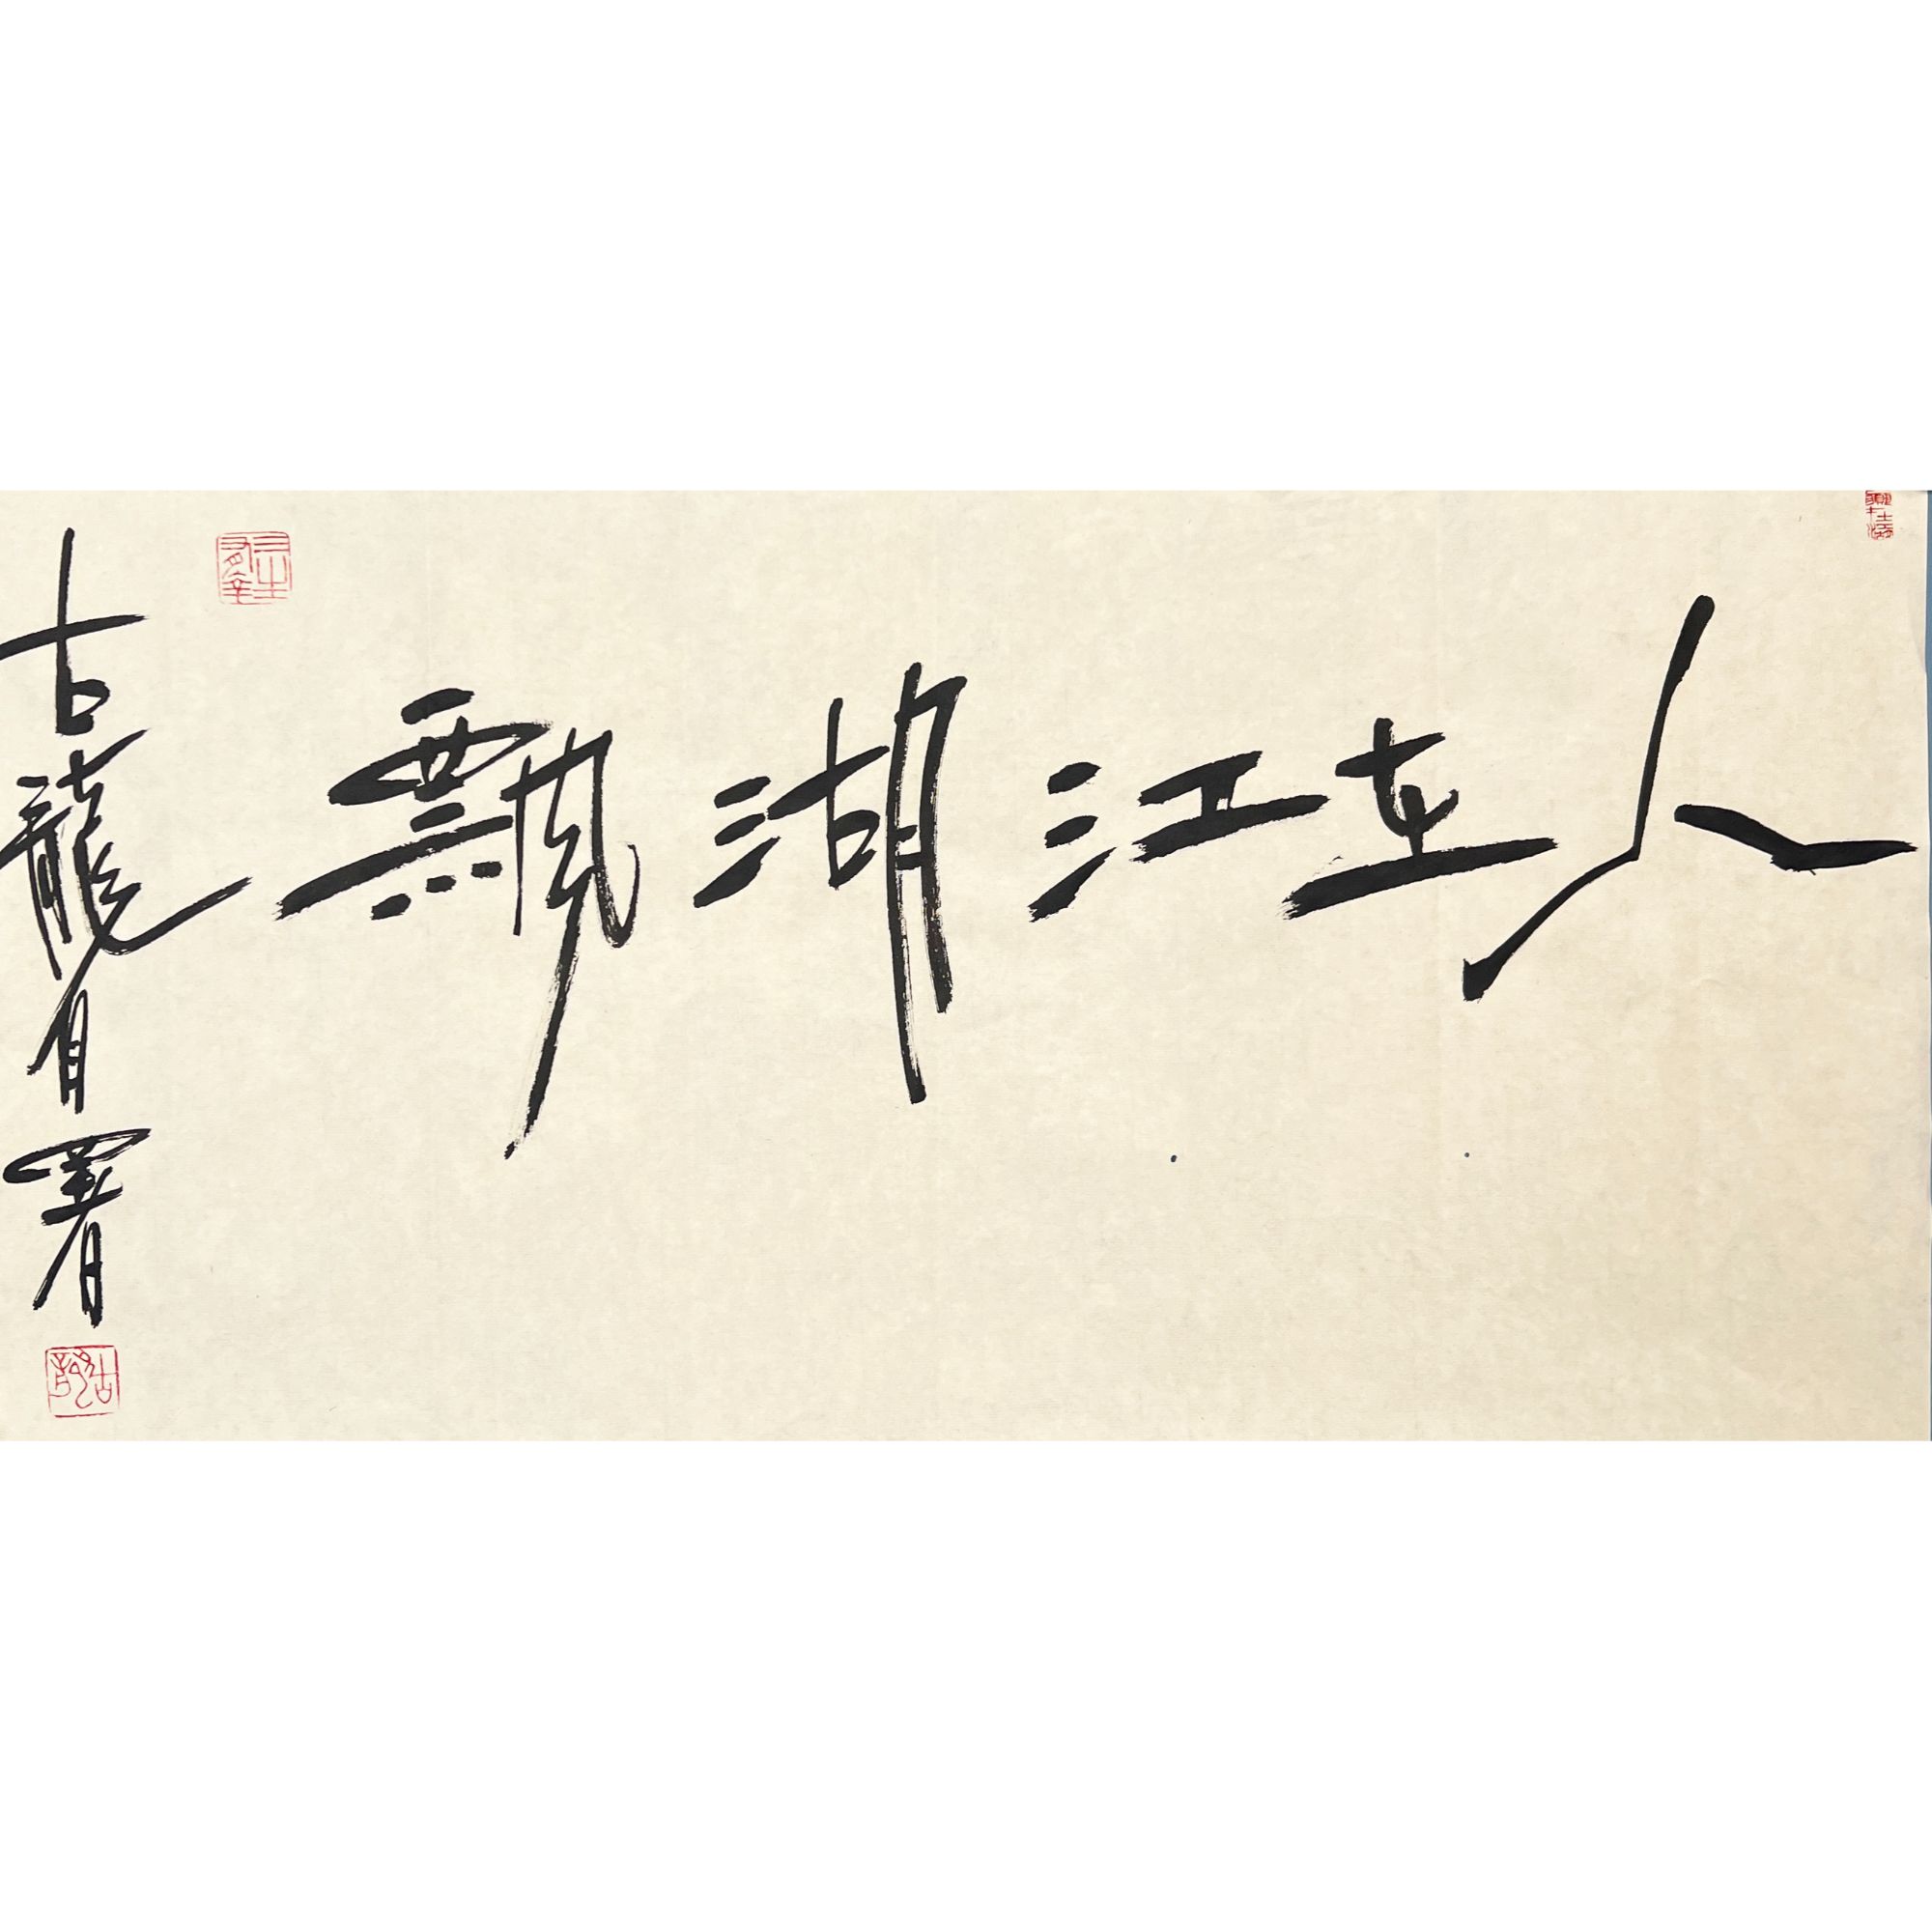 人在江湖飄
古龍自署